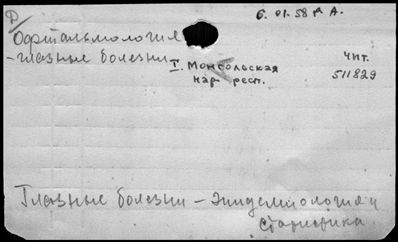 Р
6.01.58 г А.
Офтальмология
- глазные болезни I. Монгольская
нар. респ.
Чит.
511829
Глазные болезни - эпидемиология и
статистика